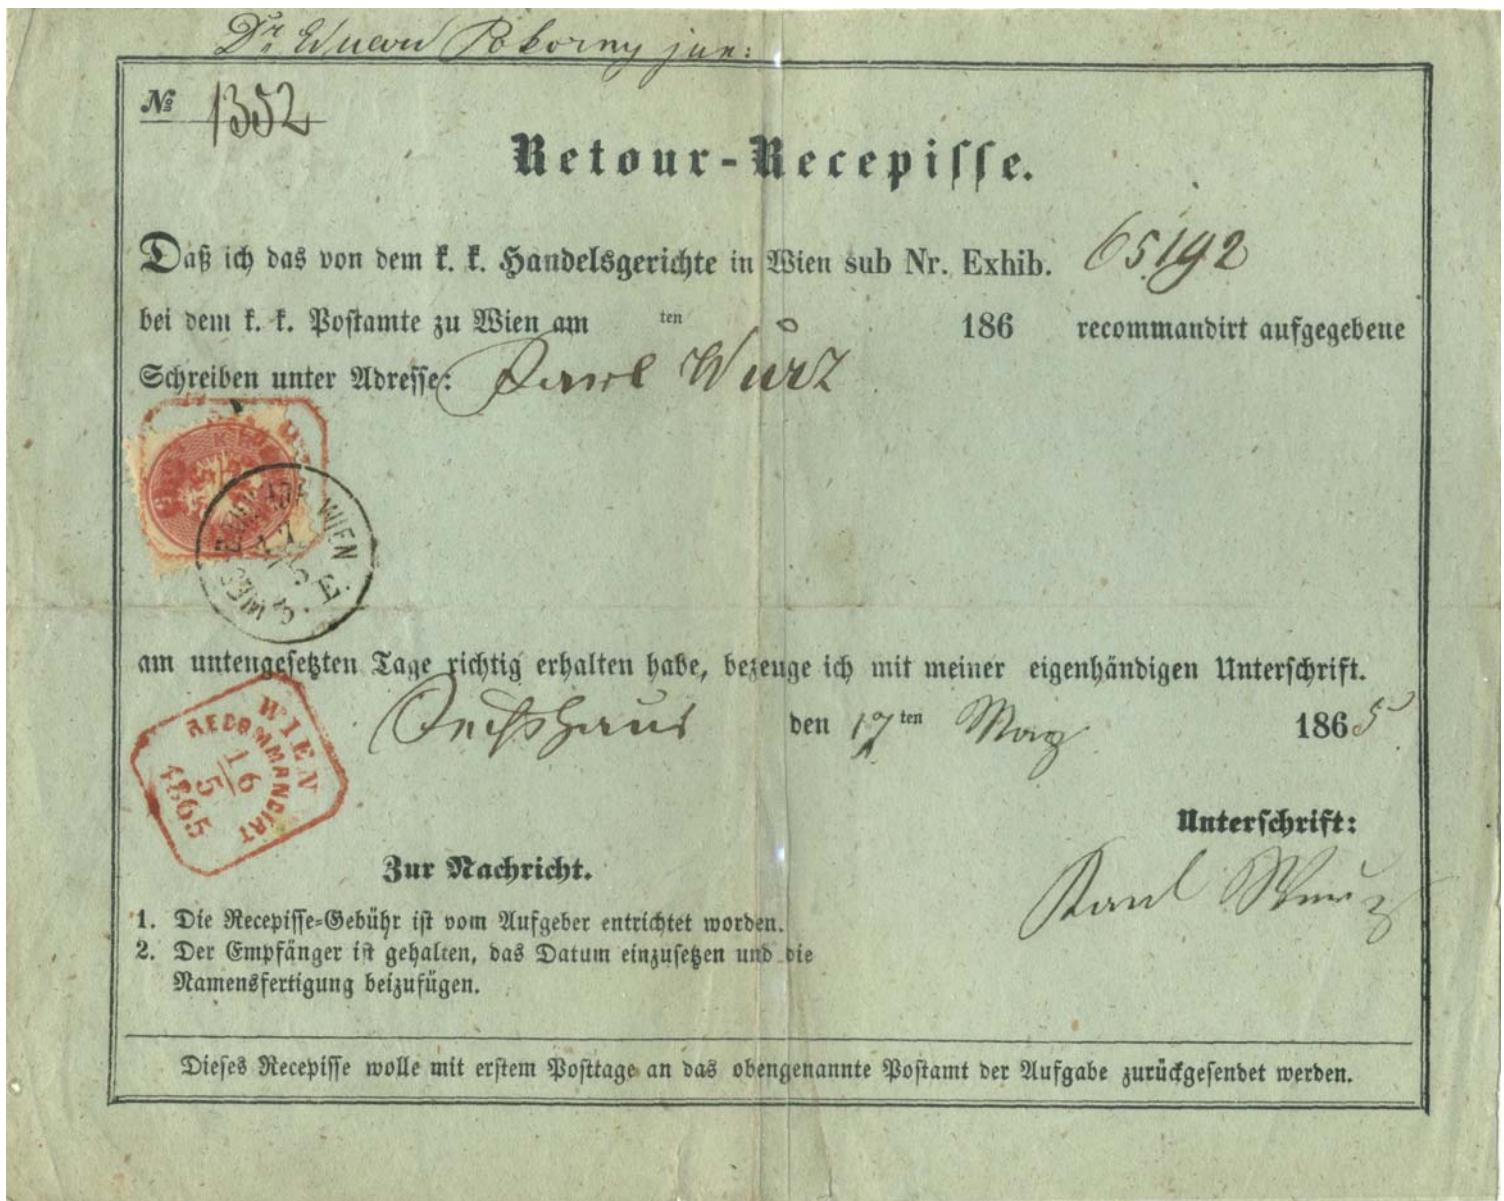 Dr. Eduard Pokorny jun:
№ 1352
Retour-Recepisse.
Daß ich das von dem k. k. Handelsgerichte in Wien sub Nr. Exhib. 65192
bei dem k. k. Postamte zu Wien am ten 186 recommandirt aufgegebene
Schreiben unter Adresse: Karl Wurz
WIEN
am untengesetzten Tage richtig erhalten habe, bezeuge ich mit meiner eigenhändigen Unterschrift.
Sechshaus den 17ten May 1865
WIEN
RECOMMANDIRT
16
5
1865
Unterschrift:
Karl Wurz
Zur Nachricht.
1. Die Recepisse-Gebühr ist vom Aufgeber entrichtet worden.
2. Der Empfänger ist gehalten, das Datum einzusetzen und die
Namensfertigung beizufügen.
Dieses Recepisse wolle mit erstem Posttage an das obengenannte Postamt der Aufgabe zurückgesendet werden.